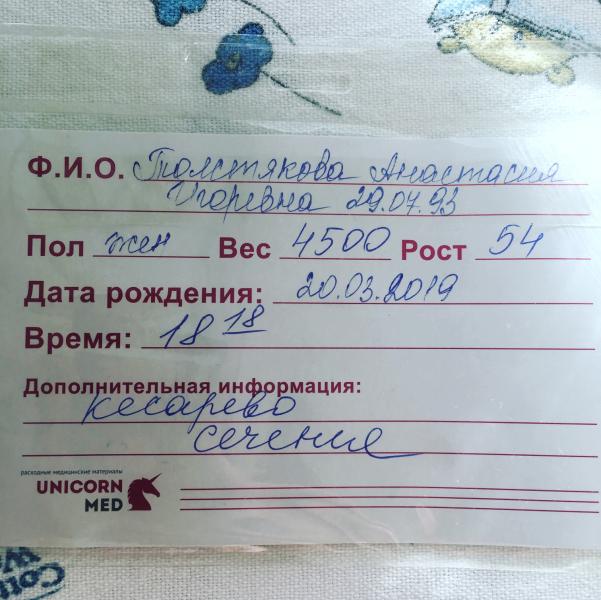 Ф.И.О. Толстякова Анастасия
Игоревна 29.07.93
Пол жен Вес 4500 Рост 54
Дата рождения: 20.03.2019
Время: 18 18
Дополнительная информация:
кесарево
сечение
расходные медицинские материалы
UNICORN
MED